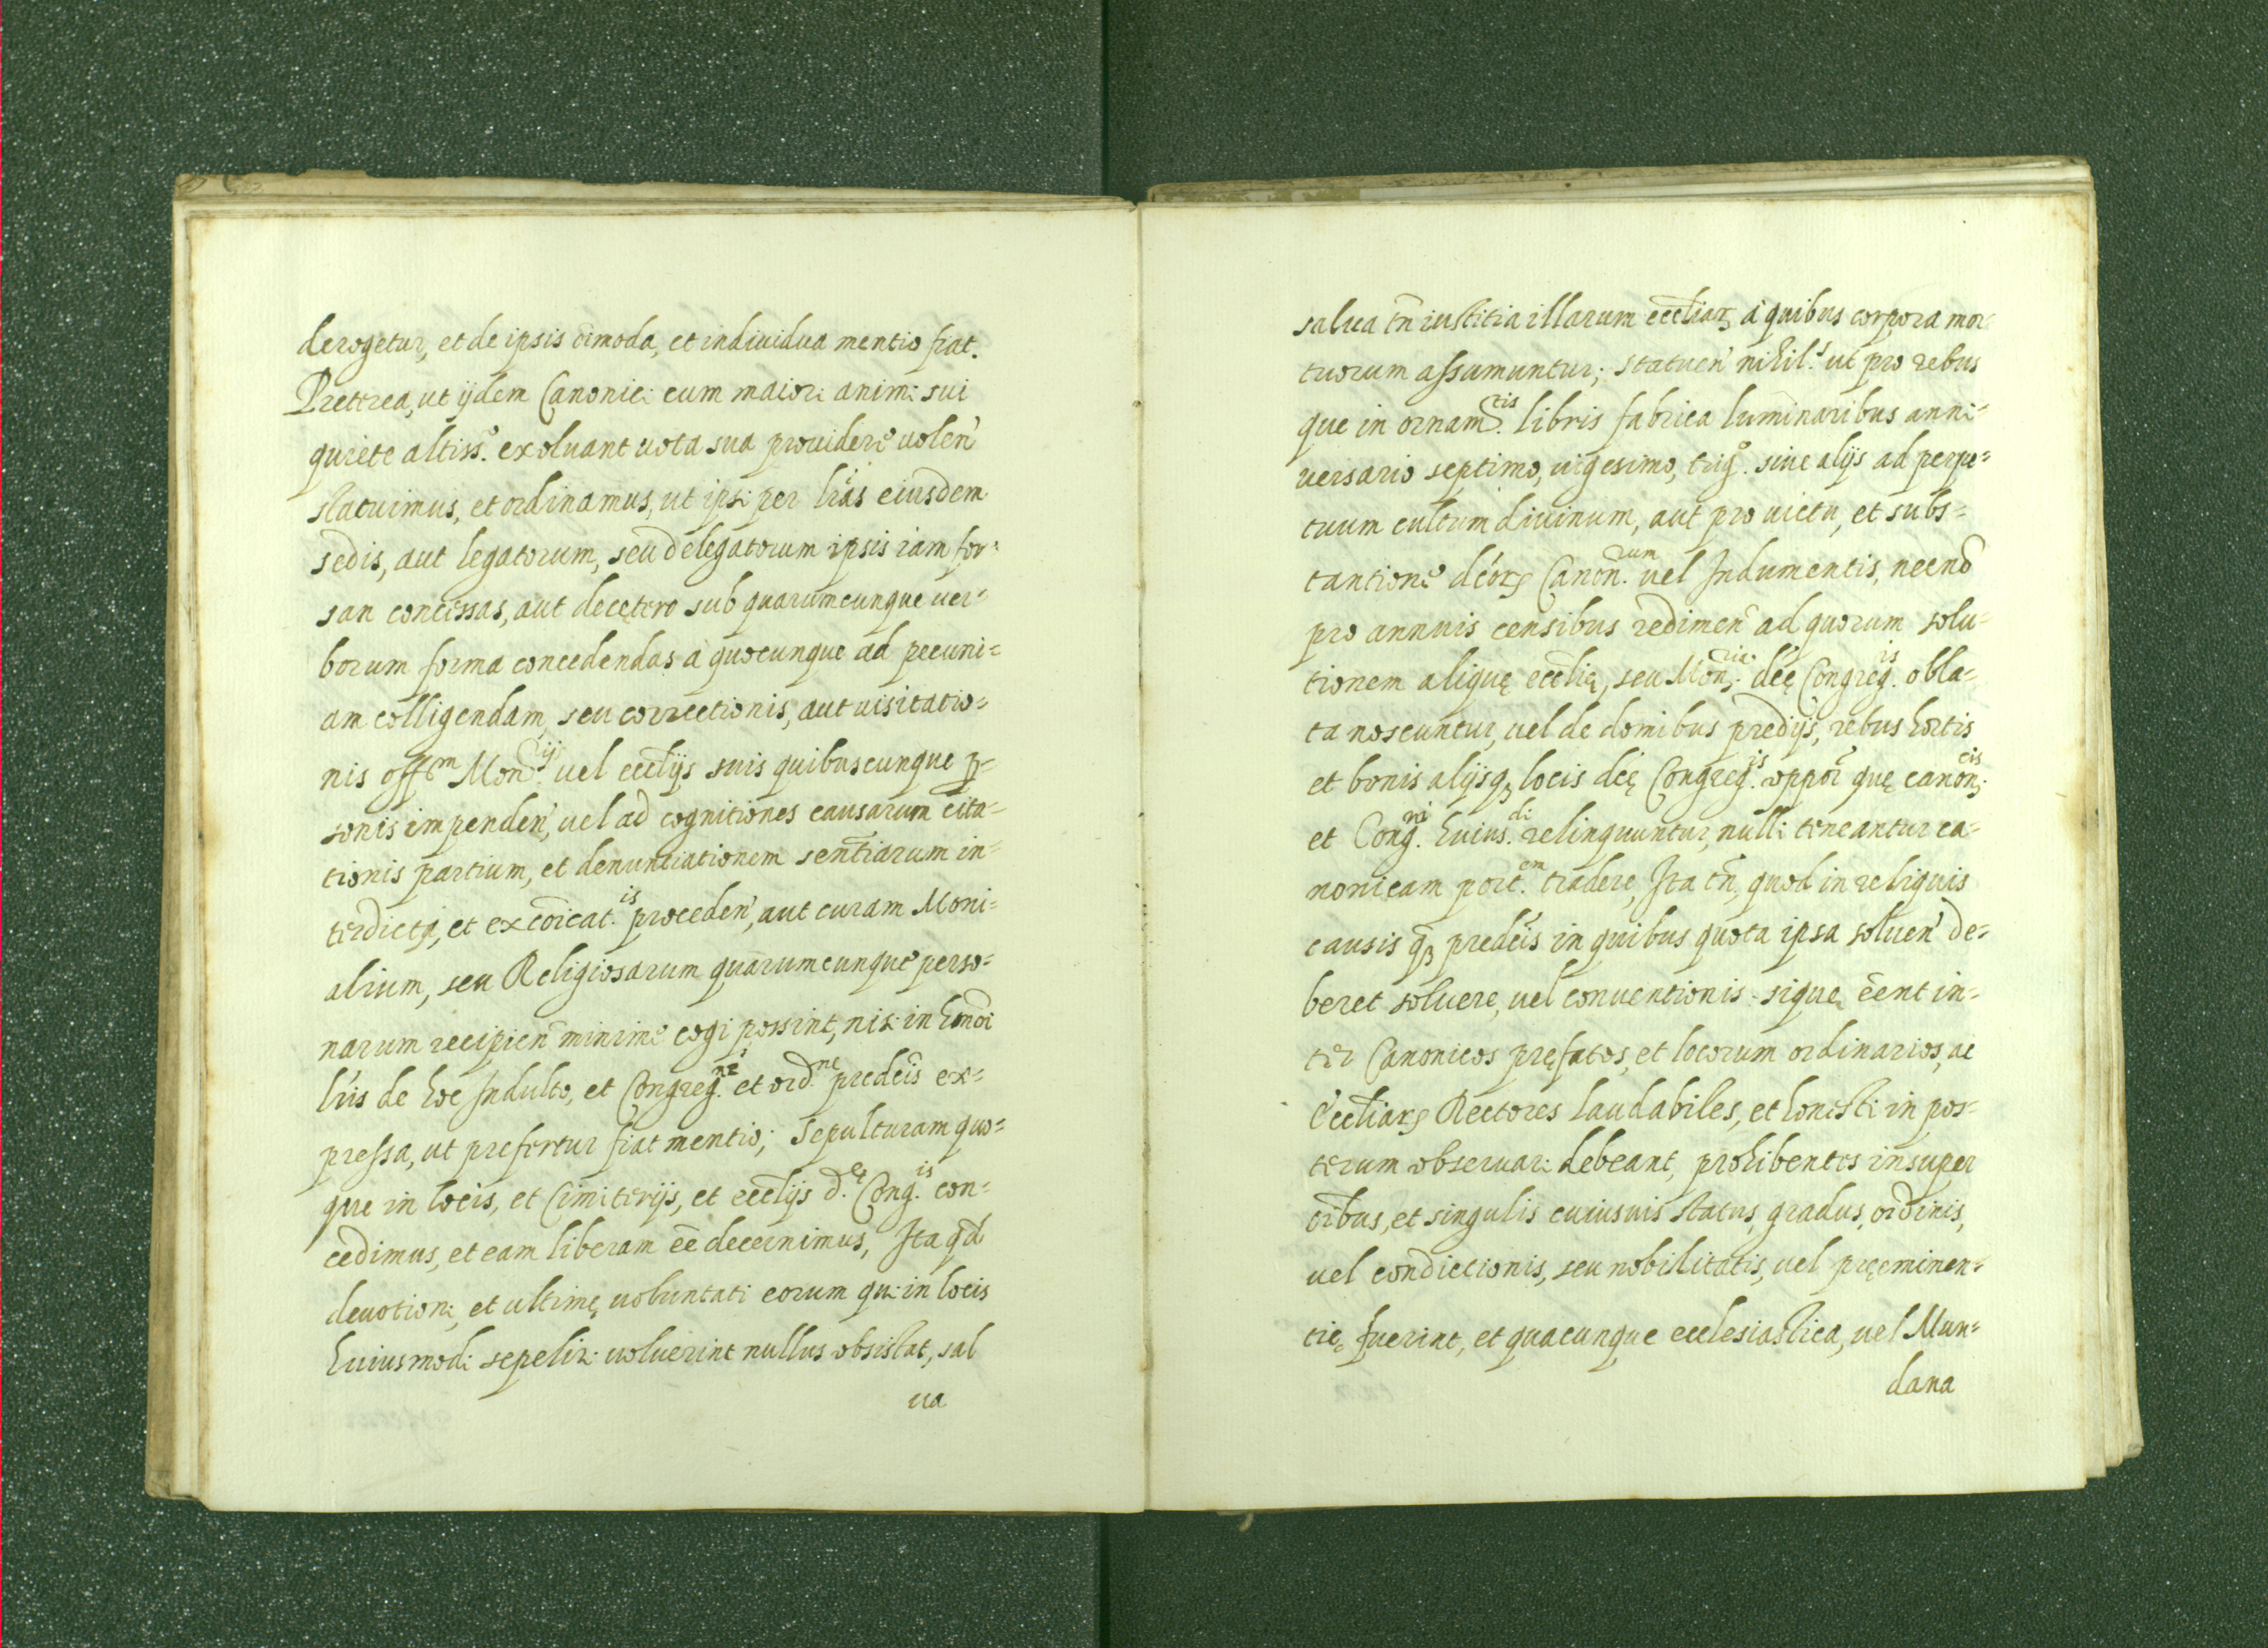 derogetur, et de ipsis oimoda, et indiuidua mentio fiat.
Preterea, ut ijdem Canonici cum maiori animi sui
quiete altiss.º exoluant uota sua prouidere uolen̄
statuimus, et ordinamus, ut ipsi per lrās eiusdem
sedis, aut legatorum, seu delegatorum ipsis iam for=
san concessas, aut decętero sub quarumcunque uer=
borum forma concedendas à quocunque ad pecuni=
am colligendam, seu correctionis, aut uisitatio=
nis offm Mon.ij uel ecclijs suis quibuscunque p=
sonis impenden̄, uel ad cognitiones causarum cita=
tionis partium, et denuntiationem sentiarum in=
terdicti, et excōicat.is proceden̄, aut curam Moni=
alium, seu Religiosarum quarumcunque perso=
narum recipien̄ minime cogi possint, nisi in hmōi
lrīs de hoc Indulto, et Congreg.ne et ord.ne predcīs ex=
pressa, ut prefertur fiat mentio; Sepulturam quo=
que in locis, et Cimiterijs, et ecclijs d.ę Cong.is con=
cedimus, et eam liberam eē decernimus, Ita qd̄
deuotioni, et ultimę uoluntati eorum qui in locis
huiusmodi sepeliri uoluerint nullus obsistat, sal
ua
salua tn̄ iustitia illarum eccliarꝝ à quibus corpora mor
tuorum assumuntur; statuen̄ nihil.s ut pro rebus
que in ornam.tis libris fabrica luminaribus anni=
uersario septimo, uigesimo, trig.º siue alijs ad perpe=
tuum cultum diuinum, aut pro uictu, et subs=
tantione dcōrꝝ Canon.rum uel Indumentis, necnō
pro annuis censibus redimen̄ ad quorum solu=
tionem alique ecclię, seu Mon.ria dcę Congreg.is obla=
ta noscuntur, uel de domibus predijs, rebus hortis
et bonis alijsqꝫ locis dcę Congreg.is oppor̄ quę canon.cis
et Cong.ni huius.di relinquuntur, nulli teneantur ca=
nonicam port.em tradere, Ita tn̄, quod in reliquis
causis qꝫ predcīs in quibus quota ipsa soluen̄ de=
beret soluere, uel conuentionis sique ēent in=
ter Canonicos pręfatos, et locorum ordinarios, ac
Eccliarꝝ Rectores laudabiles, et honesti in pos=
terum obseruari debeant, prohibentes insuper
oībus, et singulis cuiusuis status, gradus, ordinis,
uel condictionis, seu nobilitatis, uel pręeminen=
tię fuerint, et quacunque ecclesiastica, uel Mun=
dana